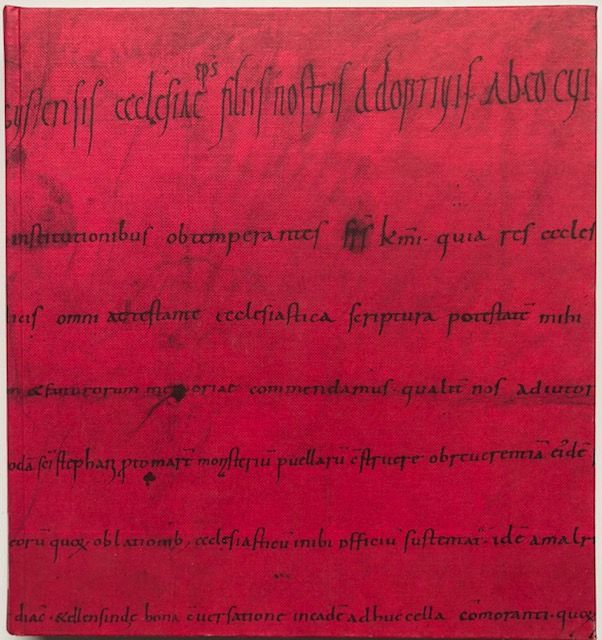 ystensis ecclesiae eps̄ filiis nostris adoptiuis ab eo cui
institutionibus obtemperantes frs̄ km̄i · quia res eccles
omni adtestante ecclesiastica scriptura potestatē mihi
& futurorum memoriae commendamus · qualit̄ nos adiutor
odā sc̄i stephani ptomart̄ monsteriū puellarū c̄struere ob reuerentiā eidē
eorū quoq; oblationib; ecclesiasticū inibi officiū sustentat̄ · idē amalri
diac̄ · & ellensinde bona c̄uersatione in eadē adhuc cella cōmoranti · quoq;